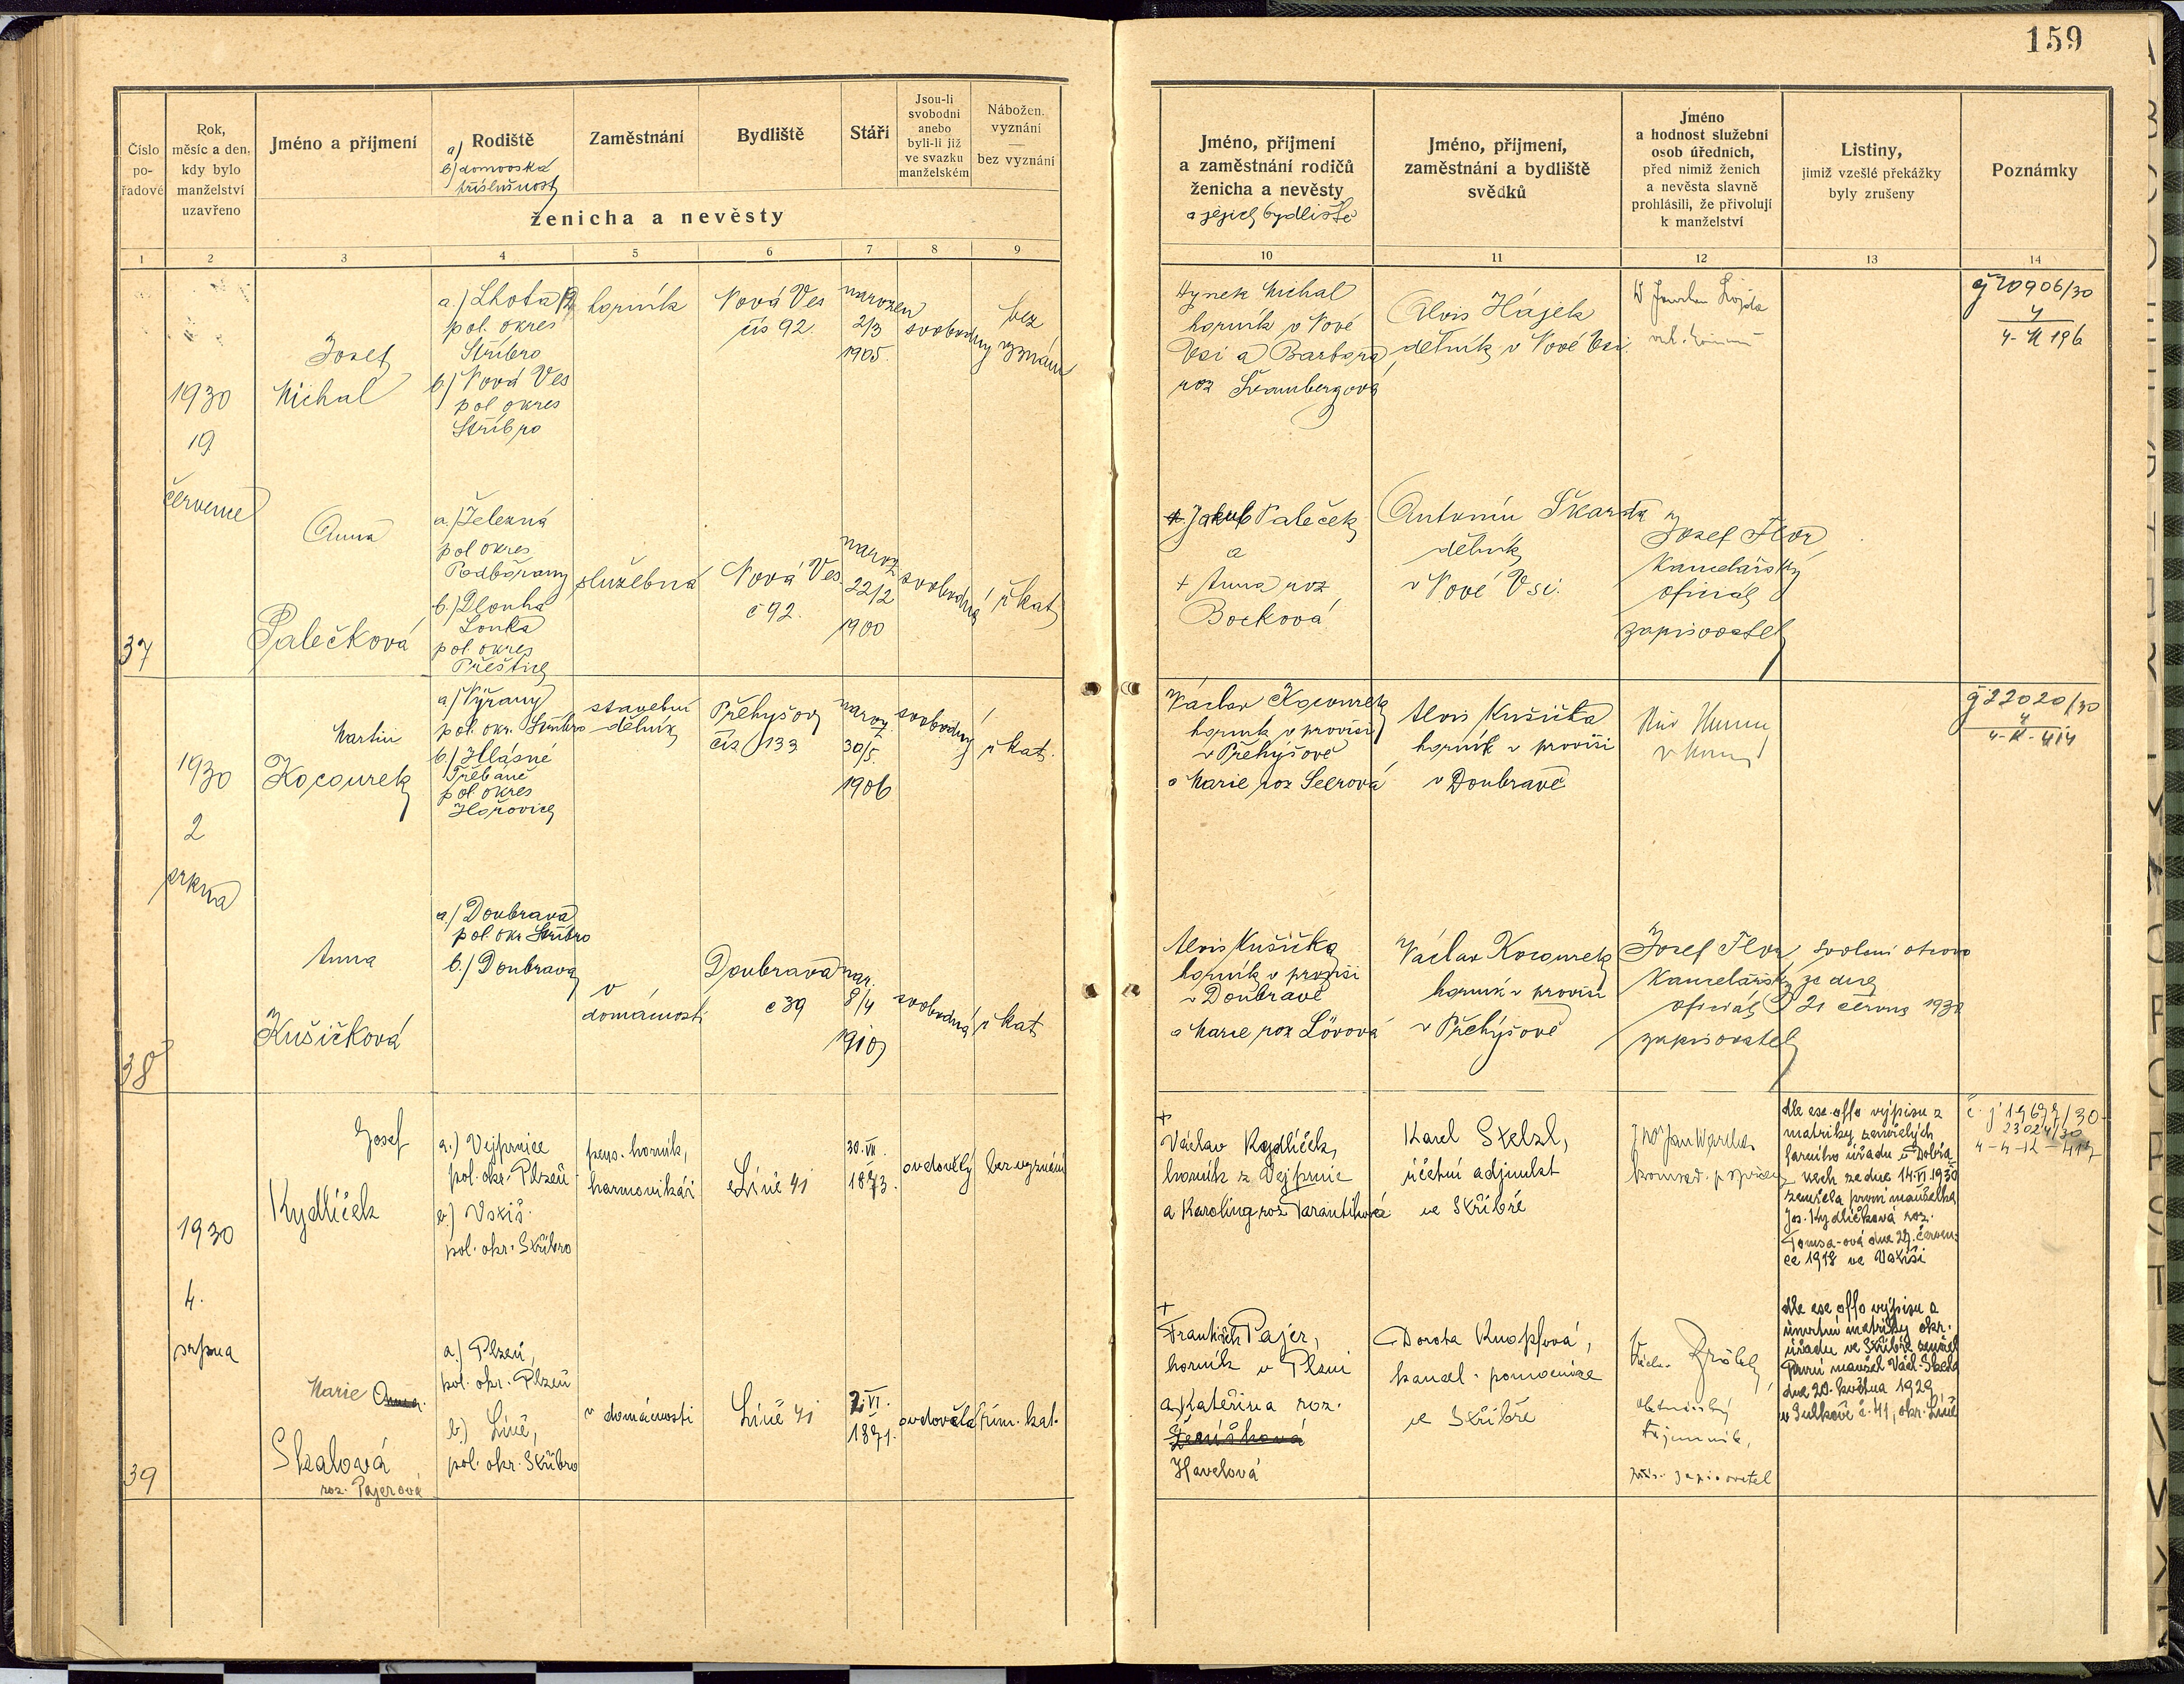 159
Číslo
po-
řadové
Rok,
měsíc a den,
kdy bylo
manželství
uzavřeno
Jméno a příjmení
Rodiště
a)
b) domovská
příslušnost
Zaměstnání
Bydliště
Stáří
Jsou-li
svobodni
anebo
byli-li již
ve svazku
manželském
Nábožen.
vyznání
bez vyznání
ženicha a nevěsty
1 2 3 4 5 6 7 8 9
Jméno, příjmení
a zaměstnání rodičů
ženicha a nevěsty
a jejich bydliště
Jméno, příjmení,
zaměstnání a bydliště
svědků
Jméno
a hodnost služební
osob úředních,
před nimiž ženich
a nevěsta slavně
prohlásili, že přivolují
k manželství
Listiny,
jimiž vzešlé překážky
byly zrušeny
Poznámky
10 11 12 13 14
37
1930
19
července
Josef
Michal
a.) Lhota
pol. okres
Stříbro
b.) Nová Ves
pol okres
Stříbro
horník
Nová Ves
čís 92.
narozen
2/3
1905.
svobodný
bez
vyznání
Hynek Michal
horník v Nové
Vsi a Barbora
roz Švambergová
Alois Hájek
dělník v Nové Vsi.
čj 20906/30
4
4-II 196
Anna
Palečková
a.) Železná
pol okres
Podbořany
b.) Dlouhá
Louka
pol. okres
Přeštice
služebná
Nová Ves
č 92.
naroz
22/2
1900
svobodná
ř kat
Jakub Paleček
a
+ Anna roz
Bocková
Antonín Škarda
dělník
v Nové Vsi.
Josef Flor
kancelářský
oficiál
zapisovatel
38
1930
2
srpna
Martin
Kocourek
a) Nýřany
pol. okr. Stříbro
b.) Hlásné
Třebáně
pol okres
Hořovice
stavební
dělník
Přehyšov
čís 133
naroz
30/5.
1906
svobodný
ř kat.
Václav Kocourek
horník v provisi
v Přehyšově
a Marie roz Seerová
Alois Kušička
horník v provisi
v Doubravě
čj 22020/30
4
4-II-414
Anna
Kušičková
a.) Doubrava
pol. okr Stříbro
b.) Doubrava
v
domácnosti
Doubrava
č 39
nar.
8/4
1910
svobodná
ř kat
Alois Kušička
horník v provisi
v Doubravě
a Marie roz Lövová
Václav Kocourek
horník v provisi
v Přehýšově
Josef Flor
kancelářský
oficiál
zapisovatel
Svolení otcovo
ze dne
21 června 1930
39
1930
4.
srpna
Josef
Kydlíček
a.) Vejprnice
pol. okr. Plzeň
b.) Vstiš.
pol. okr. Stříbro
pens. horník,
harmonikář
Líně 41
30. VII.
1873.
ovdovělý
bez vyznání
+
Václav Kydlíček,
horník z Vejprnic
a Karolina roz. Tarantíková
Karel Stelzl,
účetní adjunkt
ve Stříbře
dle ese offo výpisu z
matriky zemřelých
farního úřadu v Dobřa-
nech ze dne 14. VI. 1930
zemřela první manželka
Jos. Kydlíčková roz.
Tomsa-ová dne 29. červen-
ce 1918 ve Vstiši
č. j. 19677/30
23024/30
4-4-12-417
Marie Anna
Skalová
roz. Pajerová
a.) Plzeň,
pol. okr. Plzeň
b.) Líně,
pol. okr. Stříbro
v domácnosti
Líně 41
2. VI.
1871.
ovdovělá
řím. kat.
+
František Pajer,
horník v Plzni
a Kateřina roz.
Havelová
Dorota Knopfová,
kancel. pomocnice
ve Stříbře
tajemník,
zapisovatel
dle ese offo výpisu z
úmrtní matriky okr.
úřadu ve Stříbře zemřel
první manžel Václ. Skala
dne 20. května 1929
v Sulkově č. 41, okr. Líně